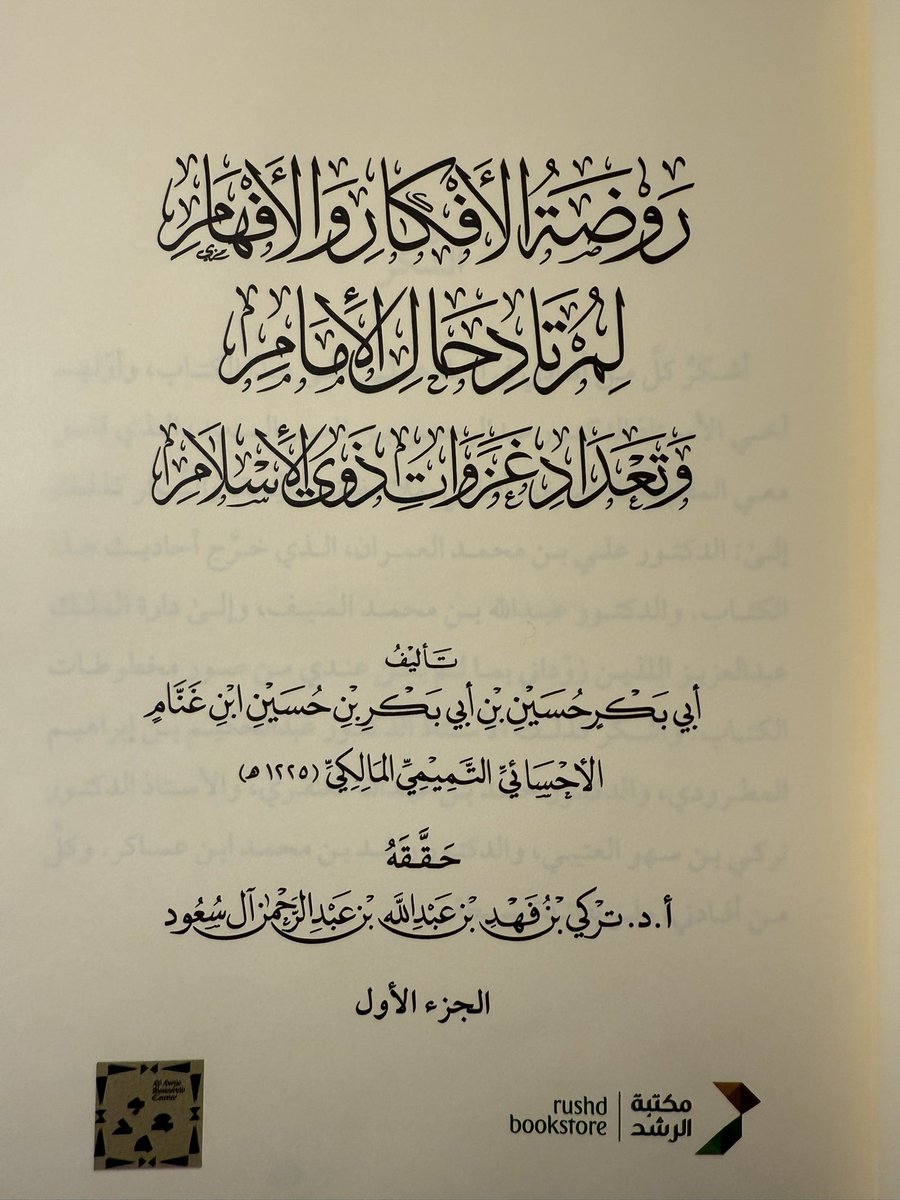 رَوْضَةُ الأَفْكَارِ وَالأَفْهَامِ
لِمُرْتَادِ حَالِ الإِمَامِ
وَتَعْدَادِ غَزَوَاتِ ذَوِي الإِسْلَامِ
تَأليفُ
أَبي بَكْرٍ حُسَيْنِ بْنِ أَبي بَكْرِ بْنِ حُسَيْنِ ابْنِ غَنَّامٍ
الأَحْسَائيِّ التَّمِيمِيِّ المَالِكِيِّ (١٢٢٥ هـ)
حَقَّقَهُ
أ.د. تركي بْنُ فَهْدِ بْنِ عَبْدِ اللَّهِ بْنِ عَبْدِ الرَّحْمٰنِ آل سُعُود
الجزء الأول
rushd bookstore | مكتبة الرشد